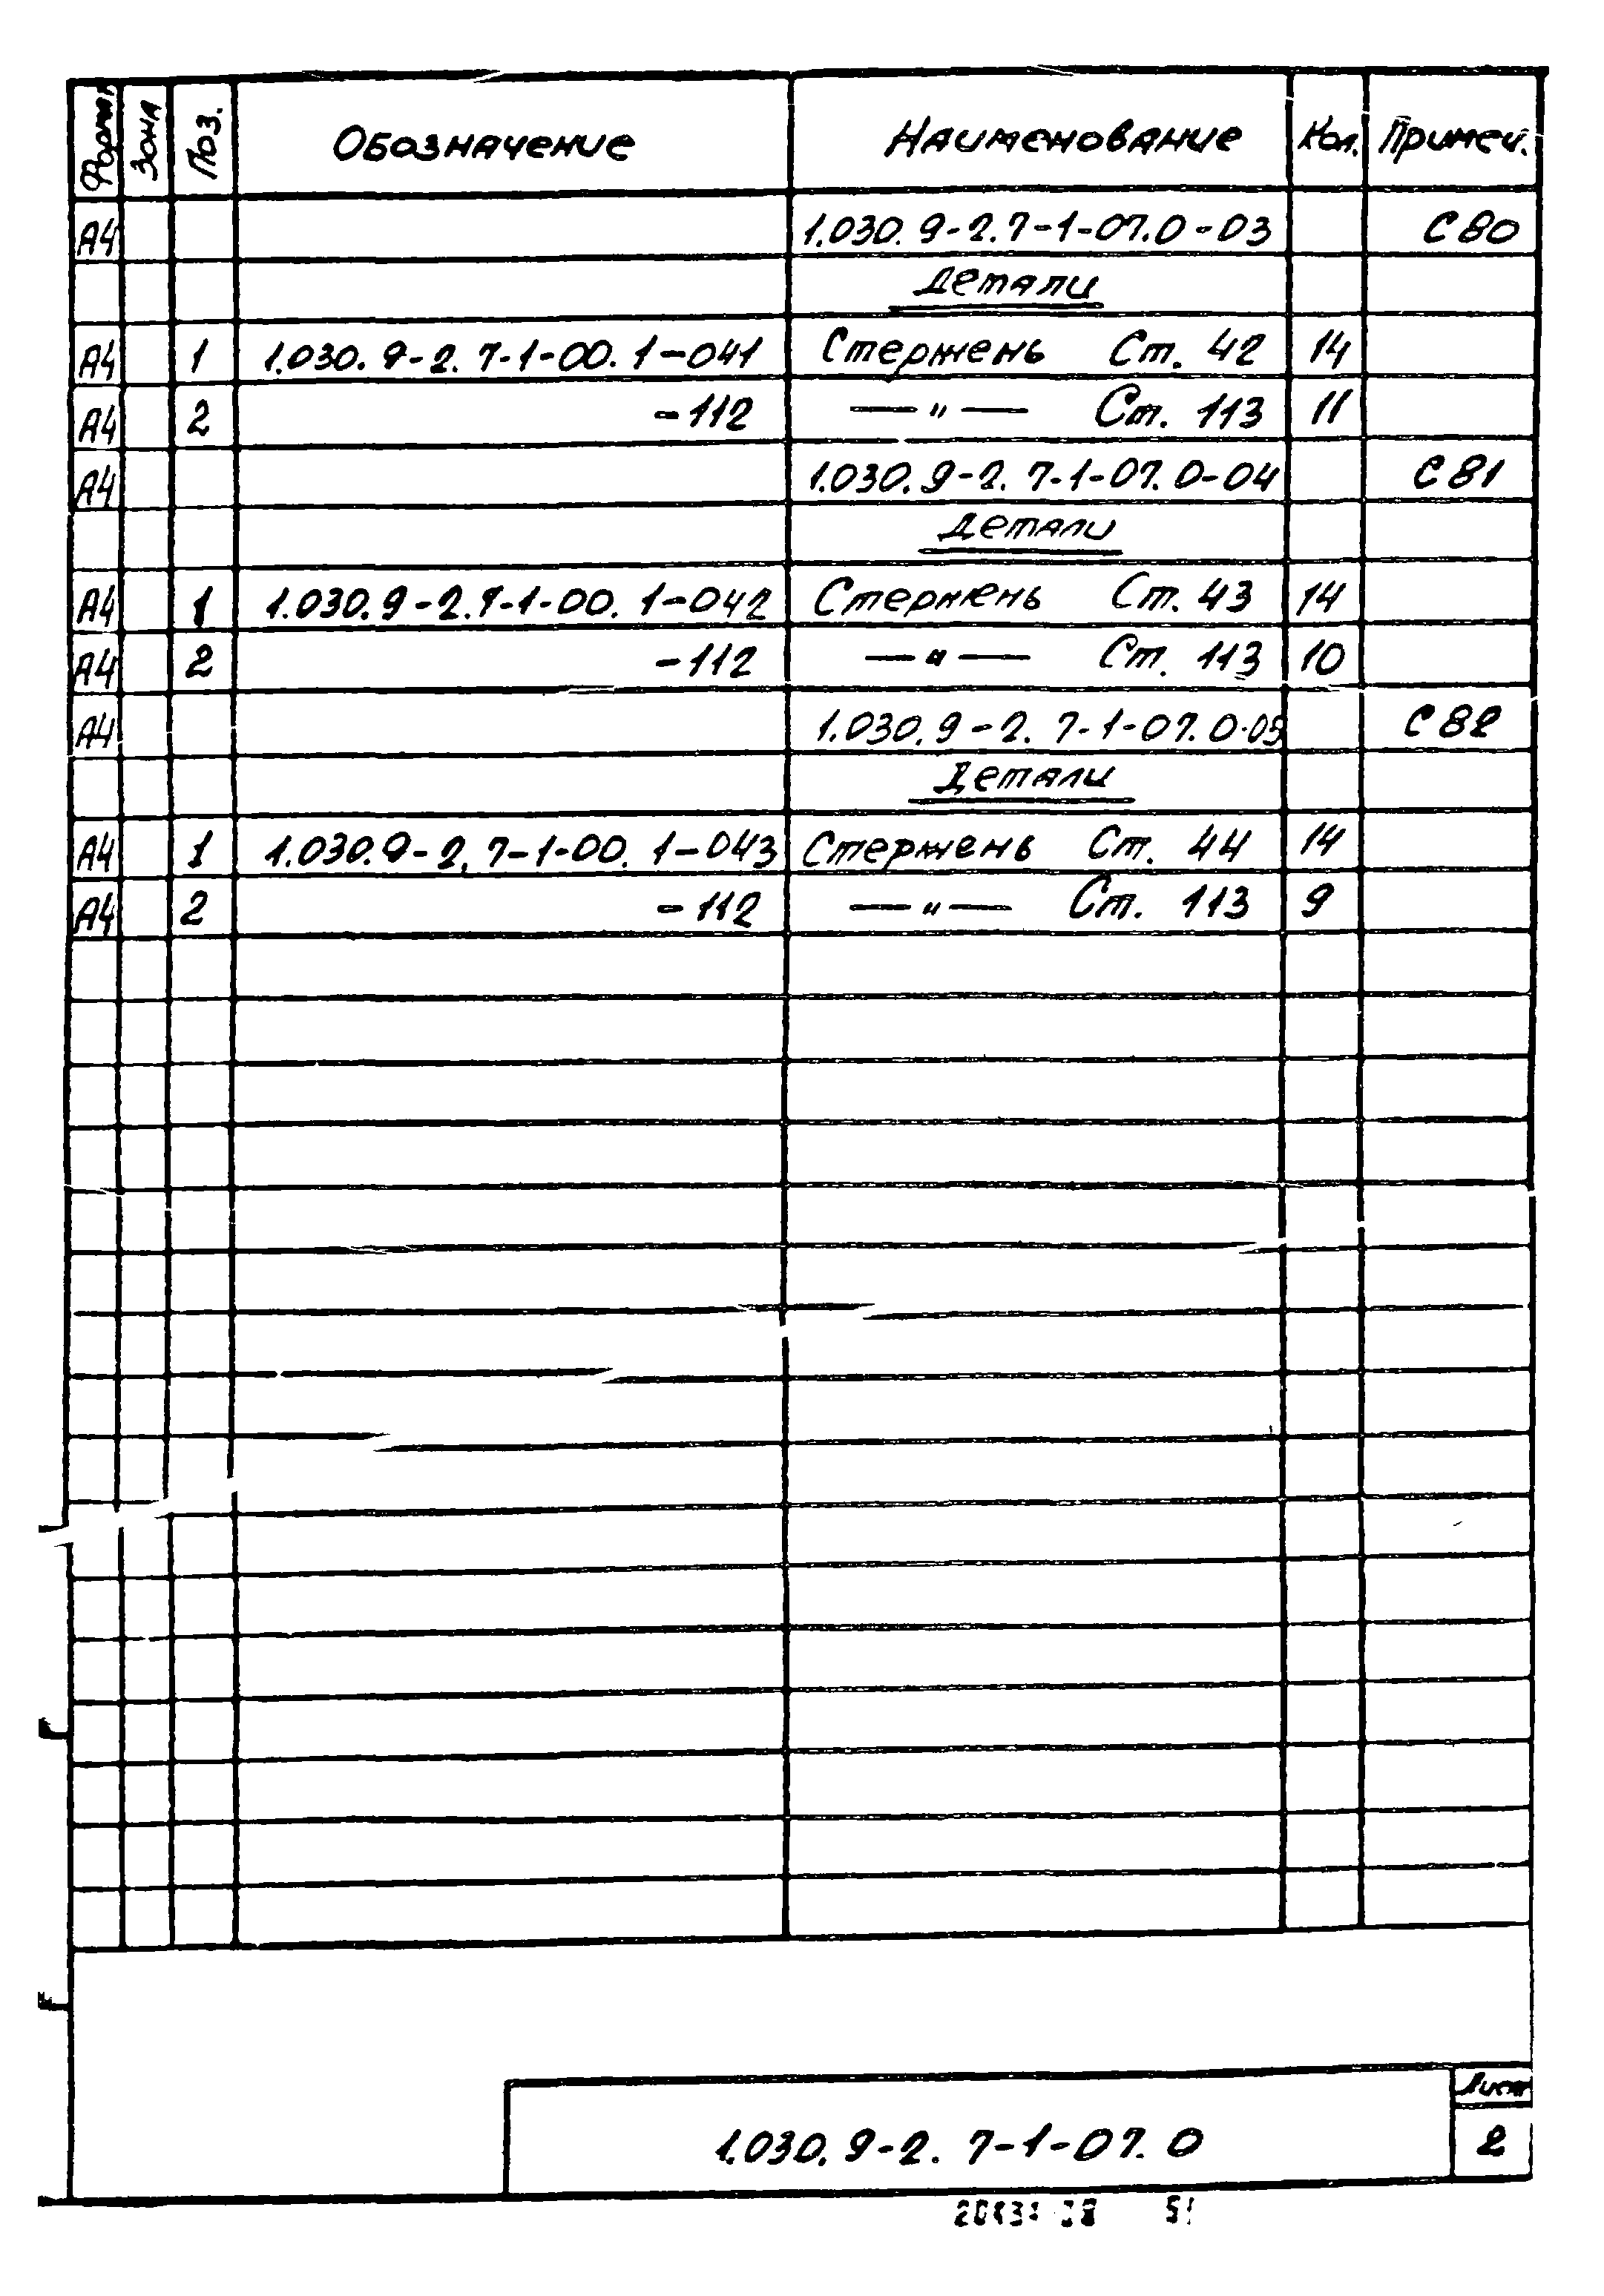 Формат Зона Поз. Обозначение Наименование Кол. Примеч.
А4 1.030.9-2.7-1-07.0-03 С80
Детали
А4 1 1.030.9-2.7-1-00.1-041 Стержень Ст. 42 14
А4 2 -112 —"— Ст. 113 11
А4 1.030.9-2.7-1-07.0-04 С81
Детали
А4 1 1.030.9-2.7-1-00.1-042 Стержень Ст. 43 14
А4 2 -112 —"— Ст. 113 10
А4 1.030.9-2.7-1-07.0-05 С82
Детали
А4 1 1.030.9-2.7-1-00.1-043 Стержень Ст. 44 14
А4 2 -112 —"— Ст. 113 9
Лист
1.030.9-2.7-1-07.0 2